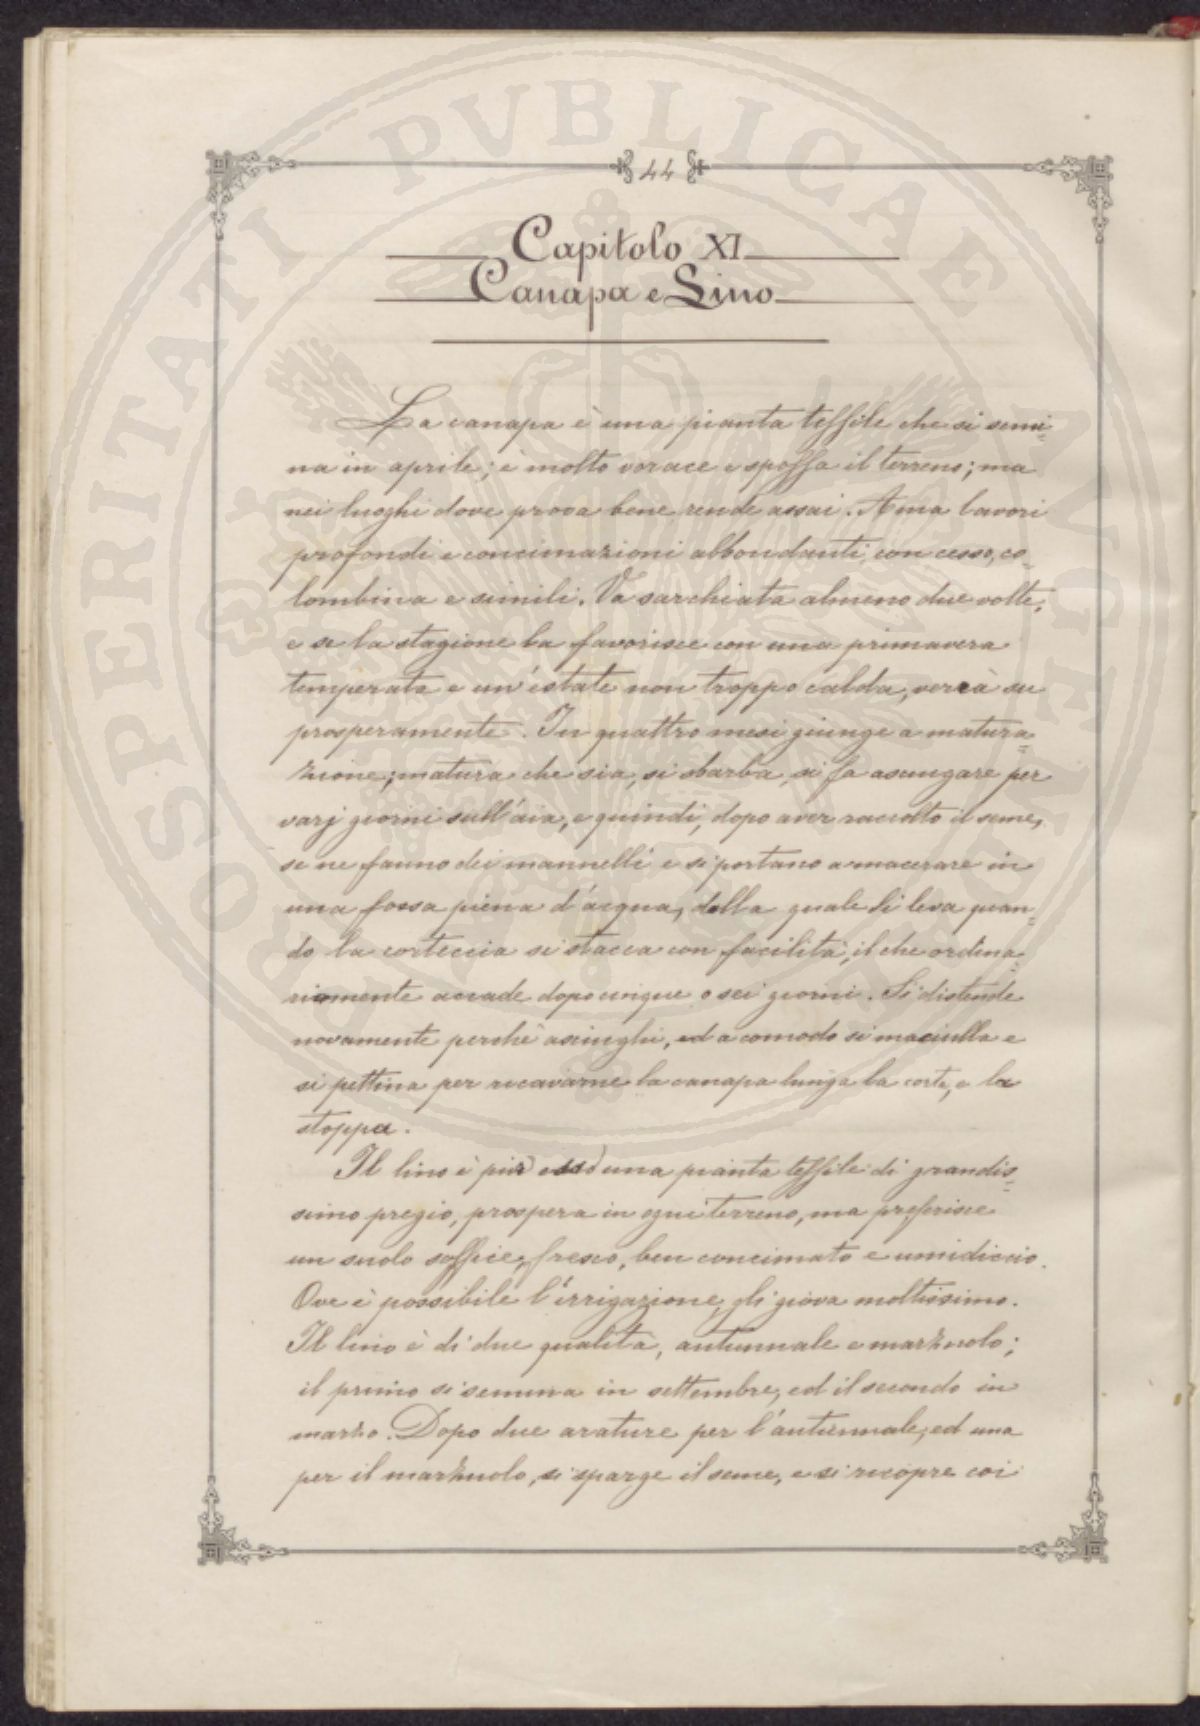 44
Capitolo XI
Canapa e Lino
La canapa è una pianta tessile che si semi-
na in aprile; è molto vorace e spossa il terreno; ma
nei luoghi dove prova bene rende assai. Ama lavori
profondi e concimazioni abbondanti con cesso, co-
lombina e simili. Va sarchiata almeno due volte,
e se la stagione la favorisce con una primavera
temperata e un'estate non troppo calda, verrà su
prosperamente. In quattro mesi giunge a matura-
zione; matura che sia, si sbarba, si fa asciugare per
varj giorni sull'aia, e quindi, dopo aver raccolto il seme,
se ne fanno dei mannelli e si portano a macerare in
una fossa piena d'acqua, dalla quale si leva quan-
do la corteccia si stacca con facilità, il che ordina-
riamente accade dopo cinque o sei giorni. Si distende
novamente perchè asciughi, ed a comodo si maciulla e
si pettina per ricavarne la canapa lunga la corta, e la
stoppa.
Il lino è pur esso una pianta tessile di grandis-
simo pregio, prospera in ogni terreno, ma preferisce
un suolo soffice, fresco, ben concimato e umidiccio.
Ove è possibile l'irrigazione, gli giova moltissimo.
Il lino è di due qualità, autunnale e marzuolo;
il primo si semina in settembre, ed il secondo in
marzo. Dopo due arature per l'autunnale, ed una
per il marzuolo, si sparge il seme, e si ricopre coi
PROSPERITATI PVBLICAE AVGENDAE